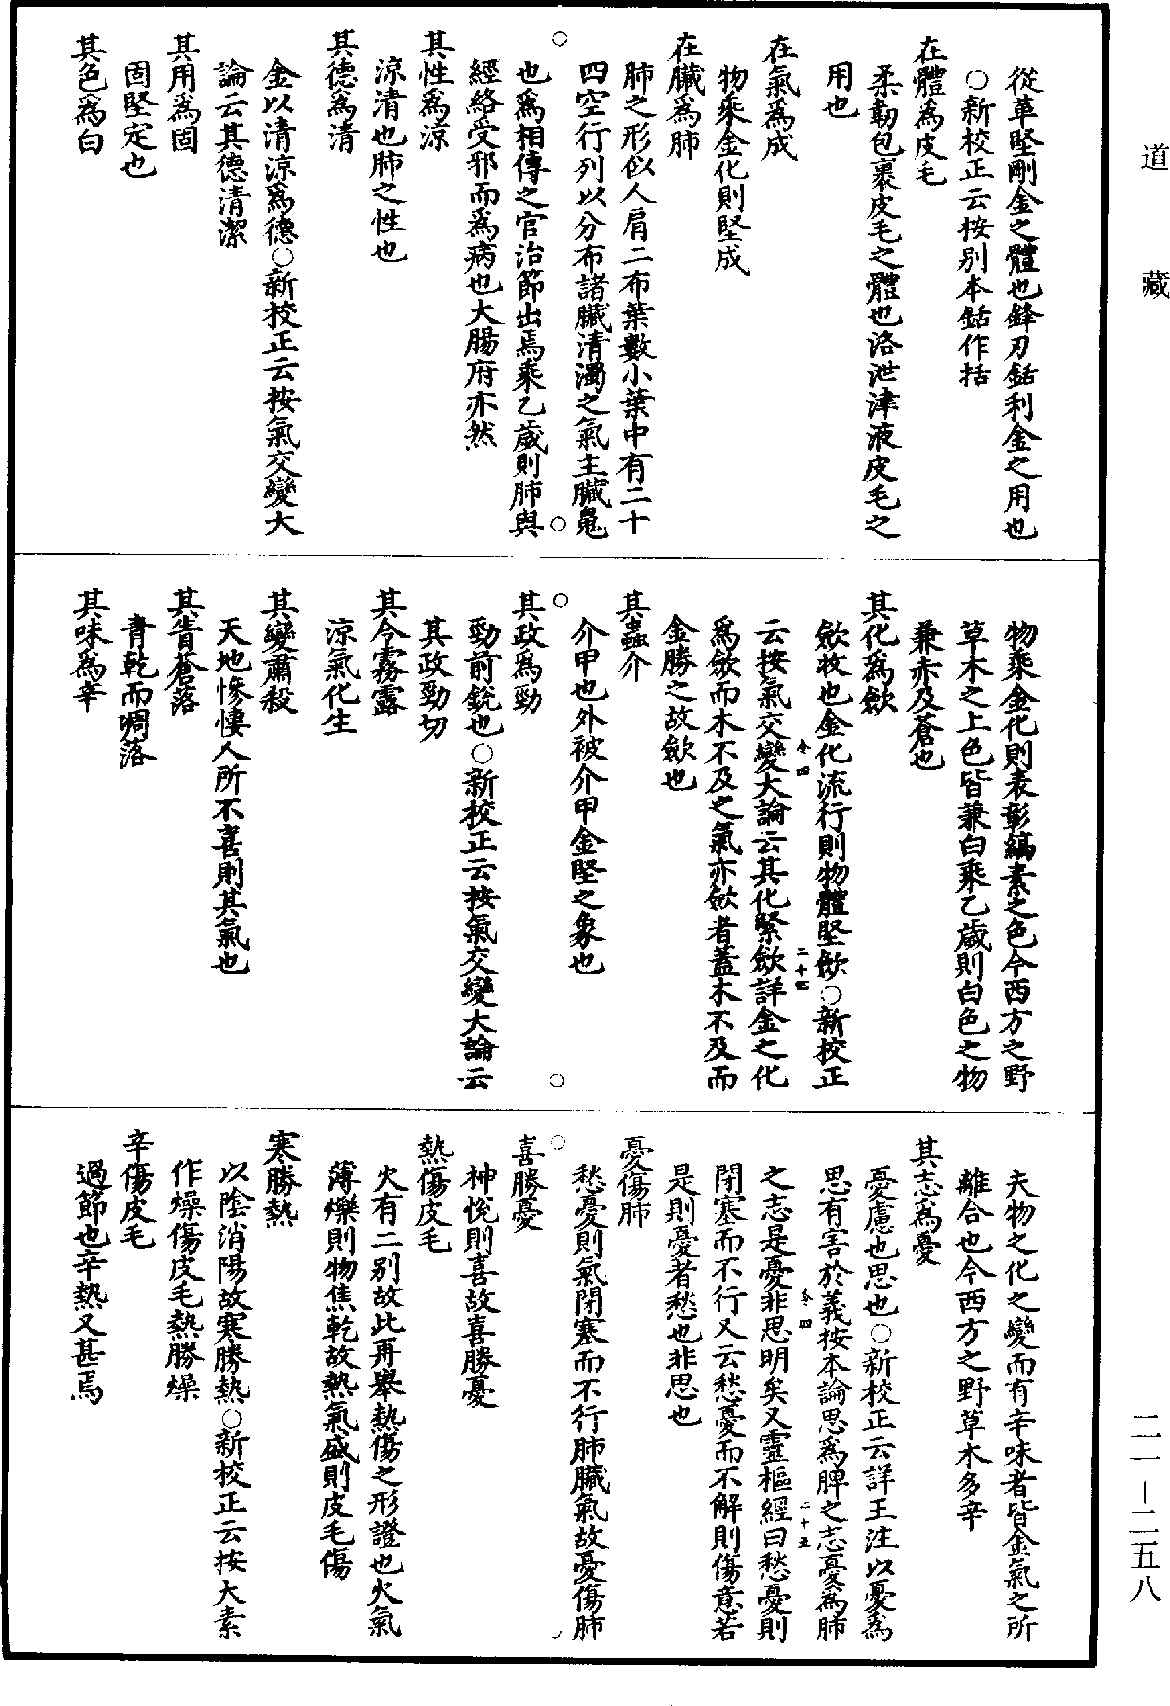 道藏
從革堅剛金之體也鋒刃銛利金之用也
○新校正云按別本銛作括
在體爲皮毛
柔韌包裹皮毛之體也洛泄津液皮毛之
用也
在氣爲成
物乘金化則堅成
在臟爲肺
肺之形似人肩二布葉數小葉中有二十
四空行列以分布諸臟清濁之氣主臟䰟
也爲相傳之官治節出焉乘乙歲則肺與
經絡受邪而爲病也大腸府亦然
其性爲涼
涼清也肺之性也
其德爲清
金以清涼爲德○新校正云按氣交變大
論云其德清潔
其用爲固
固堅定也
其色爲白
物乘金化則表彰縞素之色今西方之野
草木之上色皆兼白乘乙歲則白色之物
兼赤及蒼也
其化爲斂
斂收也金化流行則物體堅斂○新校正
云按氣交變大論云其化緊斂詳金之化
爲斂而木不及之氣亦斂者蓋木不及而
金勝之故斂也
其蟲介
介甲也外被介甲金堅之象也
其政爲勁
勁前銳也○新校正云按氣交變大論云
其政勁切
其令霧露
涼氣化生
其變肅殺
天地慘悽人所不喜則其氣也
其眚蒼落
青乾而凋落
其味爲辛
夫物之化之變而有辛味者皆金氣之所
離合也今西方之野草木多辛
其志爲憂
憂慮也思也○新校正云詳王注以憂爲
思有害於義按本論思爲脾之志憂爲肺
之志是憂非思明矣又靈樞經曰愁憂則
閉塞而不行又云愁憂而不解則傷意若
是則憂者愁也非思也
憂傷肺
愁憂則氣閉塞而不行肺臟氣故憂傷肺
喜勝憂
神悅則喜故喜勝憂
熱傷皮毛
火有二別故此再舉熱傷之形證也火氣
薄爍則物焦乾故熱氣盛則皮毛傷
寒勝熱
以陰消陽故寒勝熱○新校正云按大素
作燥傷皮毛熱勝燥
辛傷皮毛
過節也辛熱又甚焉
二一—二五八